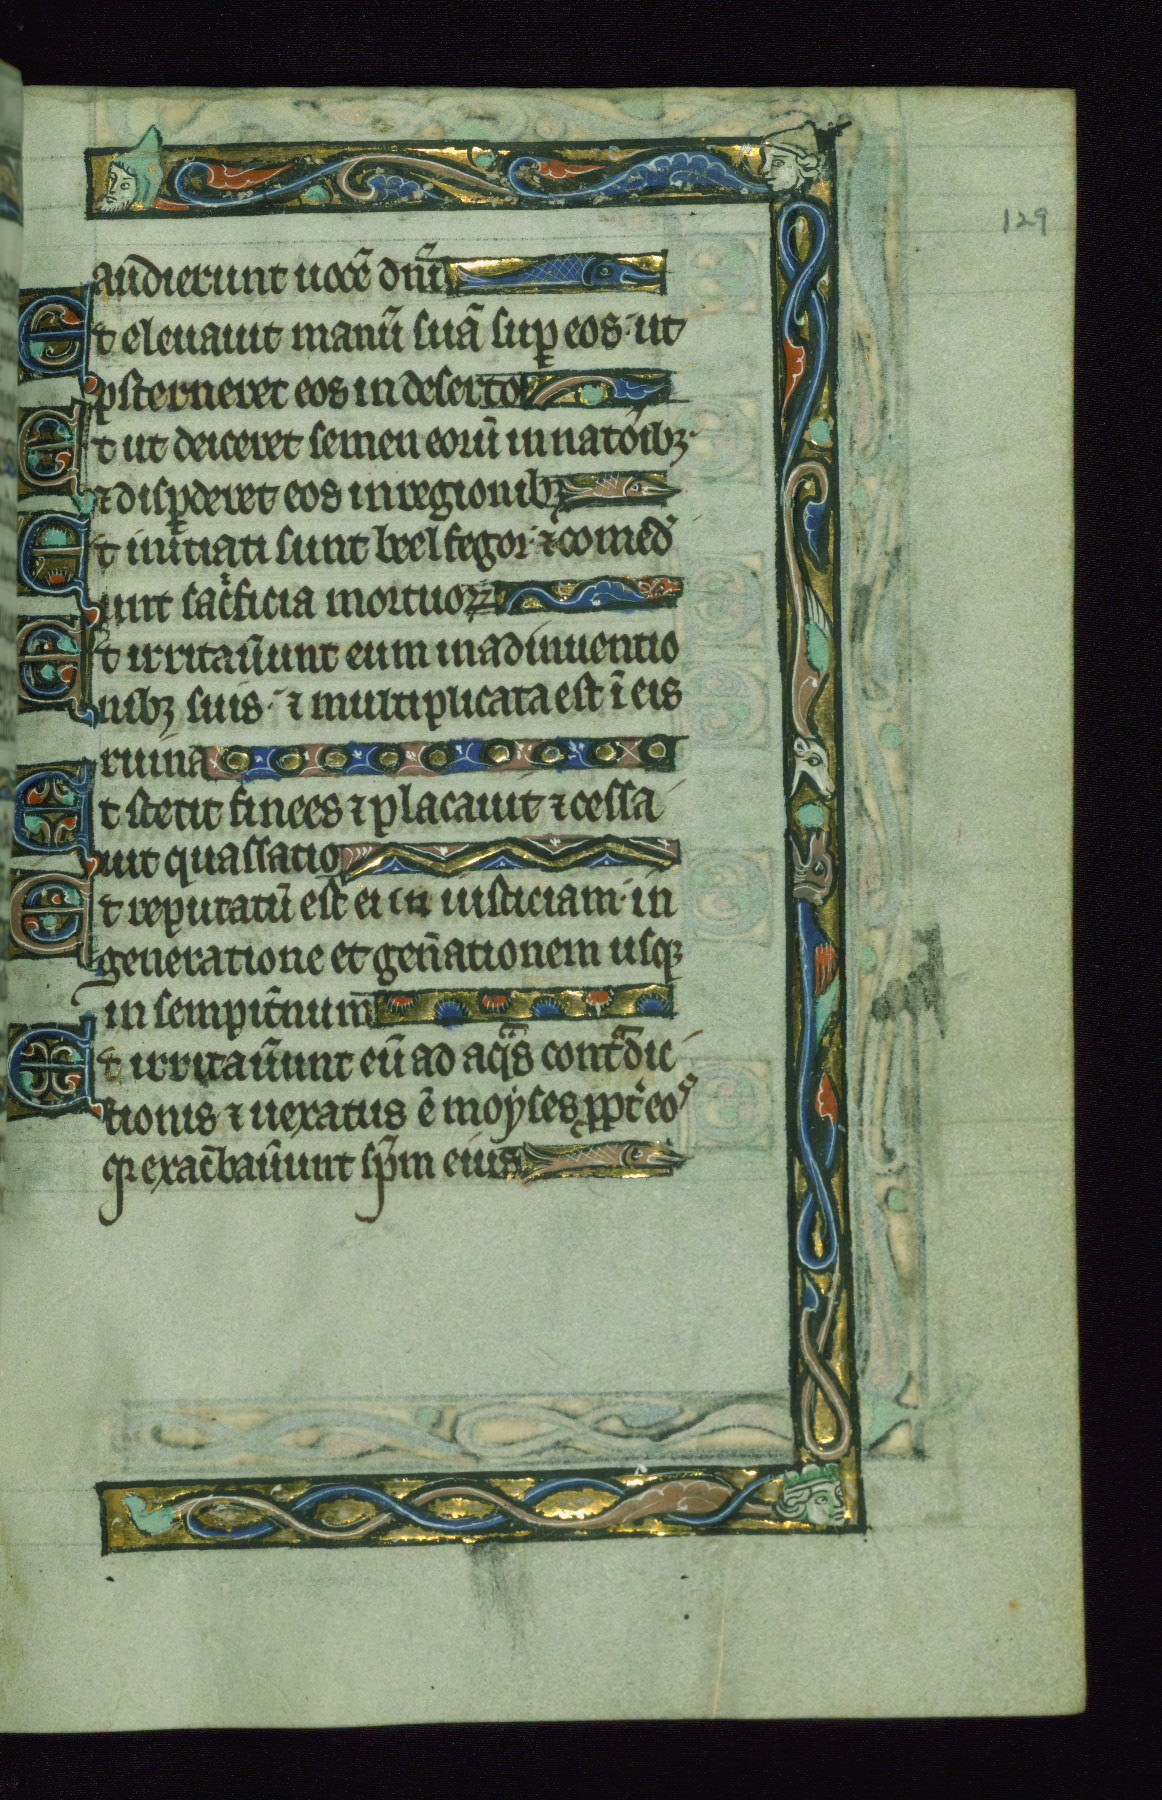 129
audierunt uocē dnī
Et eleuauit manū suā suꝑ eos· ut
ꝓsterneret eos in deserto
Et ut deiceret semen eorū in natōibꝫ·
⁊ disꝑderet eos in regionibꝫ
Et initiati sunt beelfegor· ⁊ comed̾
unt sac̾ficia mortuoꝝ
Et irritauer̄unt eum in adinuentio
nibꝫ suis· ⁊ multiplicata est ī eis
ruina
Et stetit finees ⁊ placauit ⁊ cessa
uit quassatio
Et reputatū est ei in iusticiam· in
generatione et gen̄ationem usqꝫ
in sempit̄num
Et irritau̅unt eū ad aqͣs contͣdic
tionis ⁊ uexatus ē moyses ꝓpt̾ eos
qꝛ exac̄bau̅unt sp̄m eius